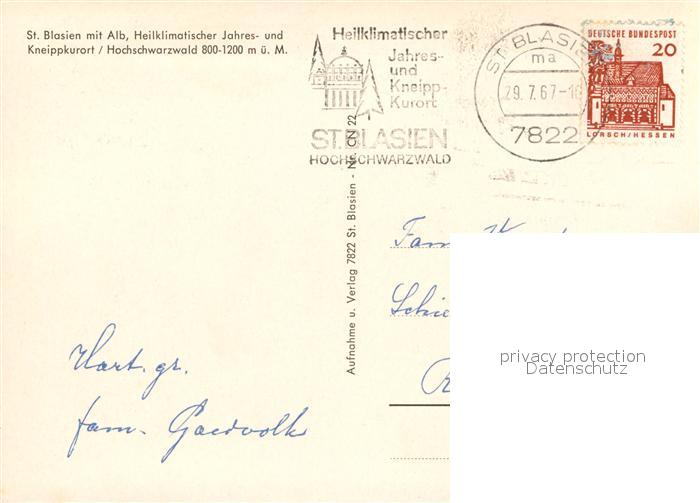 St. Blasien mit Alb, Heilklimatischer Jahres- und
Kneippkurort / Hochschwarzwald 800-1200 m ü. M.
Heilklimatischer
Jahres-
und
Kneipp-
Kurort
ST. BLASIEN
HOCHSCHWARZWALD
ST. BLASIE
ma
29. 7. 67-1
7822
DEUTSCHE BUNDESPOST
20
LORSCH/HESSEN
Aufnahme u. Verlag 7822 St. Blasien - Nr. ON 22
Fam
Schie
R
Hart. gr.
fam. Gaedvolk
privacy protection
Datenschutz